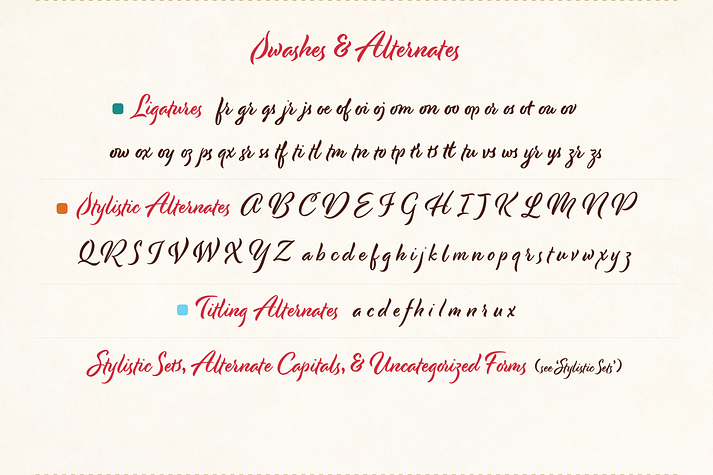 Swashes & Alternates
Ligatures fr gr gs jr js oe of oi oj om on oo op or os ot ou ov
ow ox oy oz ps qx sr ss tf ti tl tm tn to tp tr ts tt tu vs ws yr ys zr zs
Stylistic Alternates A B C D E F G H I J K L M N O P
Q R S T V W X Y Z a b c d e f g h i j k l m n o p q r s t u v w x y z
Titling Alternates a c d e f h i l m n r u x
Stylistic Sets, Alternate Capitals, & Uncategorized Forms (see 'Stylistic Sets')